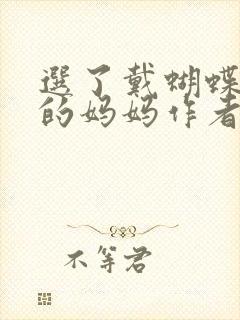 選了戴蝴蝶
的妈妈作者
不等君